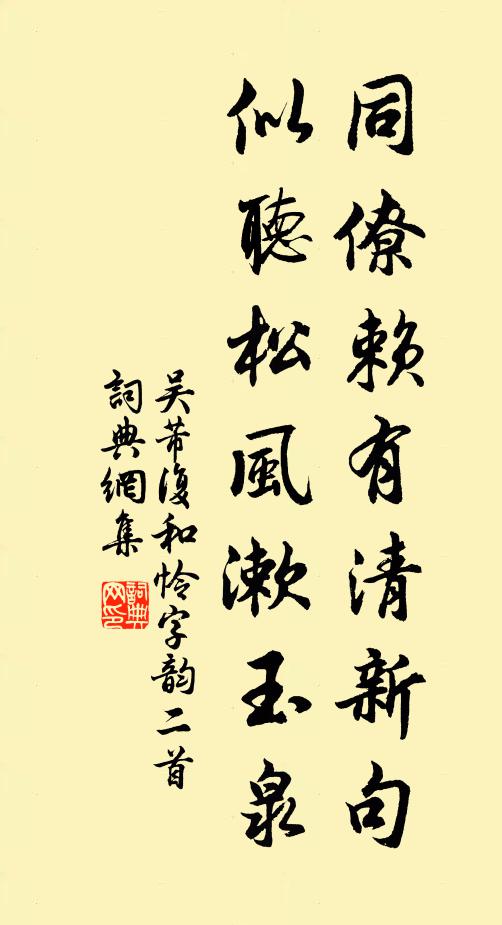 同僚賴有清新句
似聽松風漱玉泉
吴芾復和怜字韵二首
詞典網集
詞典
网印